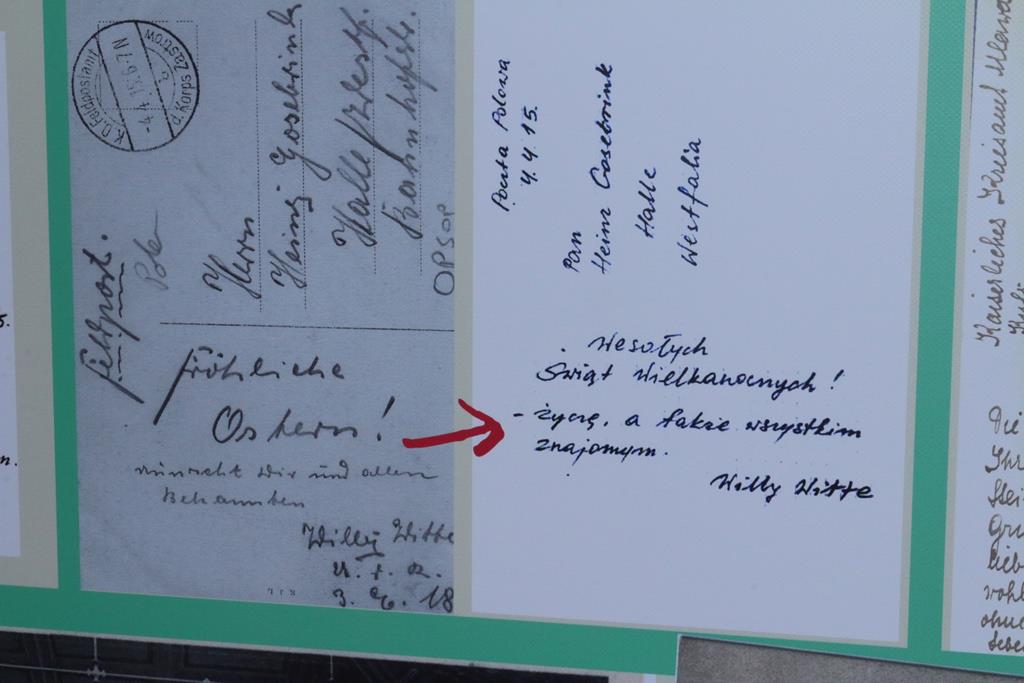 K.D. Feldpostamt
-4.4.15.6-7N
d. Korps Zastrow
Feldpost.
Polen
Herrn
Heinz Gosebrink
Halle /Westf.
Bahnhofstr.
OPSOP
Fröhliche
Ostern!
wünscht Dir und allen
Bekannten
Willy Witte
Poczta Polowa
4.4.15.
Pan
Heinz Gosebrink
Halle
Westfalia
Wesołych
Świąt Wielkanocnych!
- życzę, a także wszystkim
znajomym.
Willy Witte
Kaiserliches Kreisamt Mława
Die
Ihr
Gru
lieb
wohl
ohne